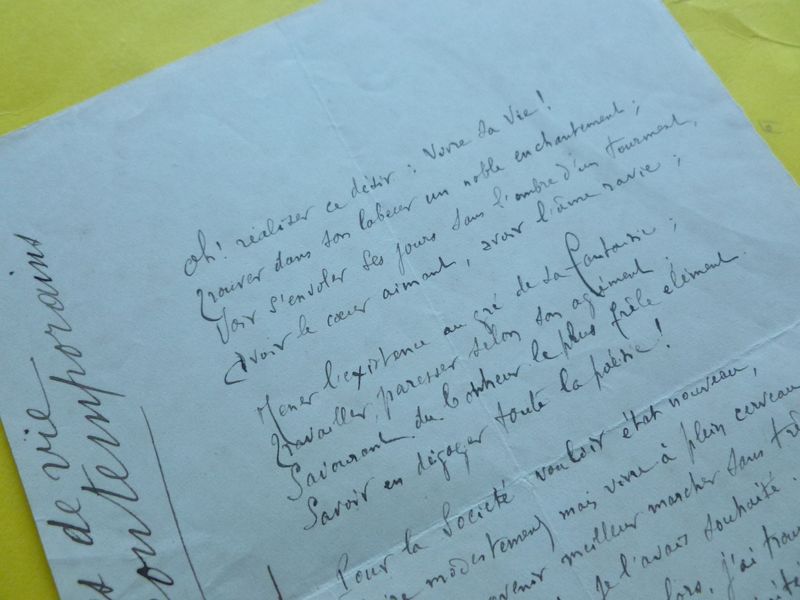 Oh! réaliser ce désir : Vivre sa Vie !
Trouver dans son labeur un noble enchantement ;
Voir s'envoler ses jours sans l'ombre d'un tourment,
Avoir le cœur aimant, avoir l'âme ravie ;
Mener l'existence au gré de sa fantaisie ;
Travailler, paresser selon son agrément ;
Savourant du bonheur le plus frêle élément.
Savoir en dégager toute la poésie !
Pour la Société vouloir état nouveau,
modestement) mais vivre à plein cerveau
meilleur marcher sans
je l'avais souhaité.
lors, j'ai
de vie
contemporains